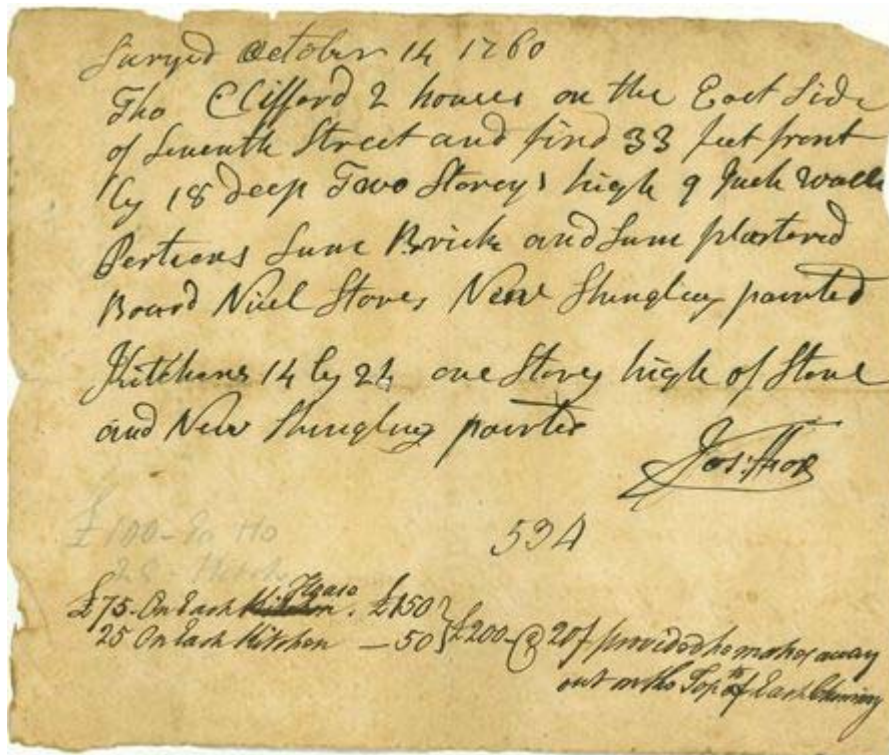 Survyd October 14 1760
Tho Clifford 2 houses on the East Side
of Seventh Street and find 33 feet front
by 18 deep Two Storeys high 9 Inch walls
Pertions Sum Brick and Sum plastered
Board Nuel Stores New Shingling painted
Kitchens 14 by 24 one Storey high of Stone
and New Shingling painted
Jos: Fox
534
£100- Ho
25 - Kitch
House
£75- On Each Kitchen. £150
25 On Each Kitchen — 50 } £200- @ 20/ provided he makes away
out on the Top of Each Chimney